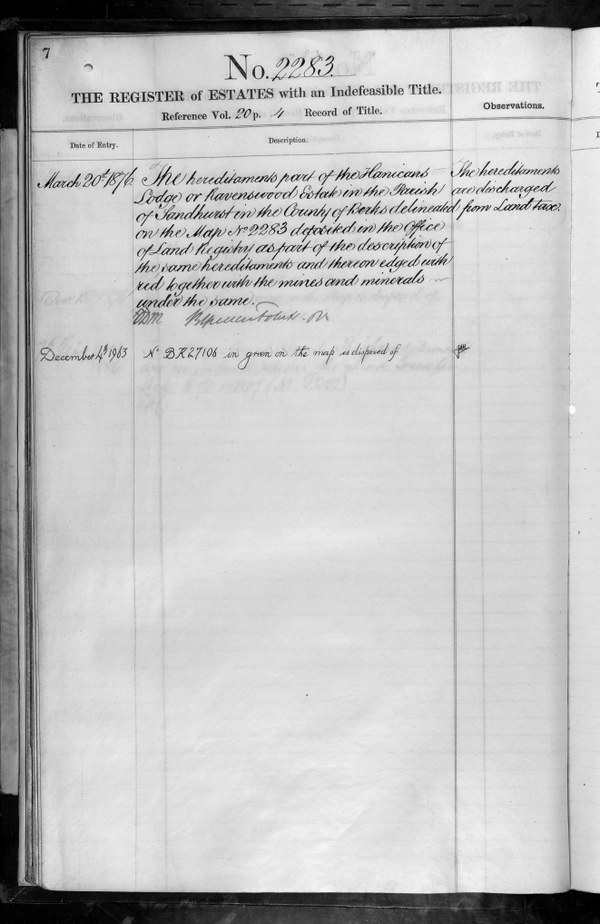 7
No. 2283.
THE REGISTER of ESTATES with an Indefeasible Title.
Reference Vol. 20 p. 4 Record of Title.
Observations.
Date of Entry.
Description.
March 20th 1876.
The hereditaments part of the Hanicans
Lodge or Ravenswood Estate in the Parish
of Sandhurst in the County of Berks delineated
on the Map No 2283 deposited in the Office
of Land Registry as part of the description of
the same hereditaments and thereon edged with
red together with the mines and minerals
under the same.
The hereditaments
are discharged
from Land tax.
December 4th 1963
No BK27106 in green on the map is disposed of